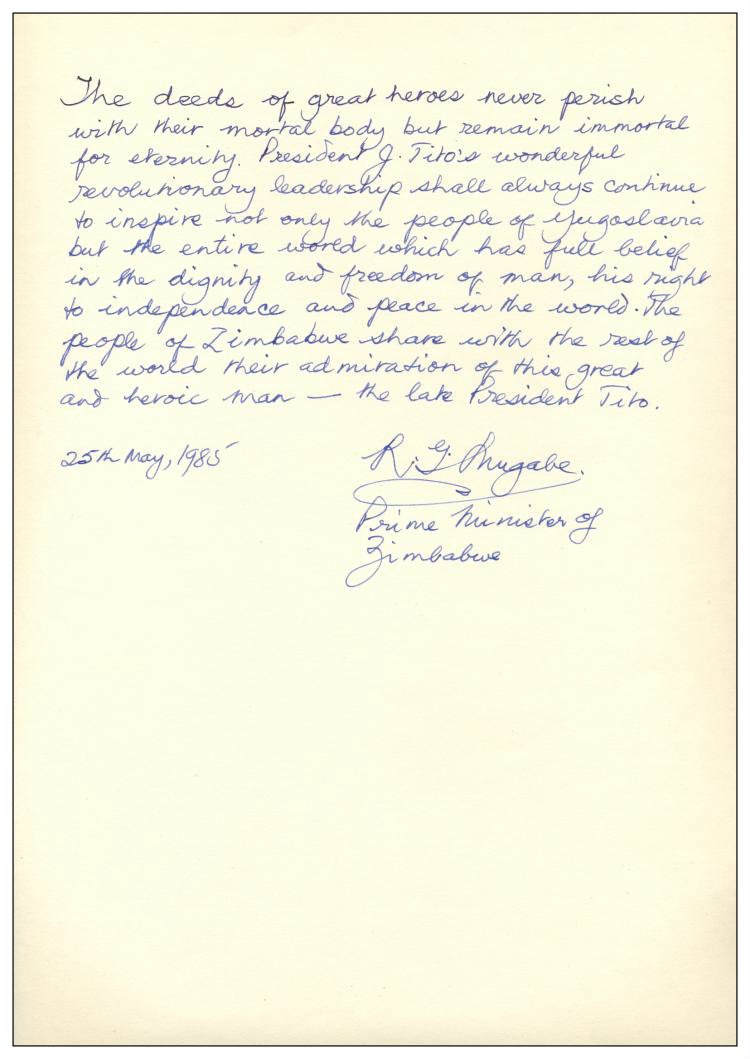 The deeds of great heroes never perish
with their mortal body but remain immortal
for eternity. President J. Tito's wonderful
revolutionary leadership shall always continue
to inspire not only the people of Yugoslavia
but the entire world which has full belief
in the dignity and freedom of man, his right
to independence and peace in the world. The
people of Zimbabwe share with the rest of
the world their admiration of this great
and heroic man — the late President Tito.
25th May, 1985
R. G. Mugabe.
Prime Minister of
Zimbabwe